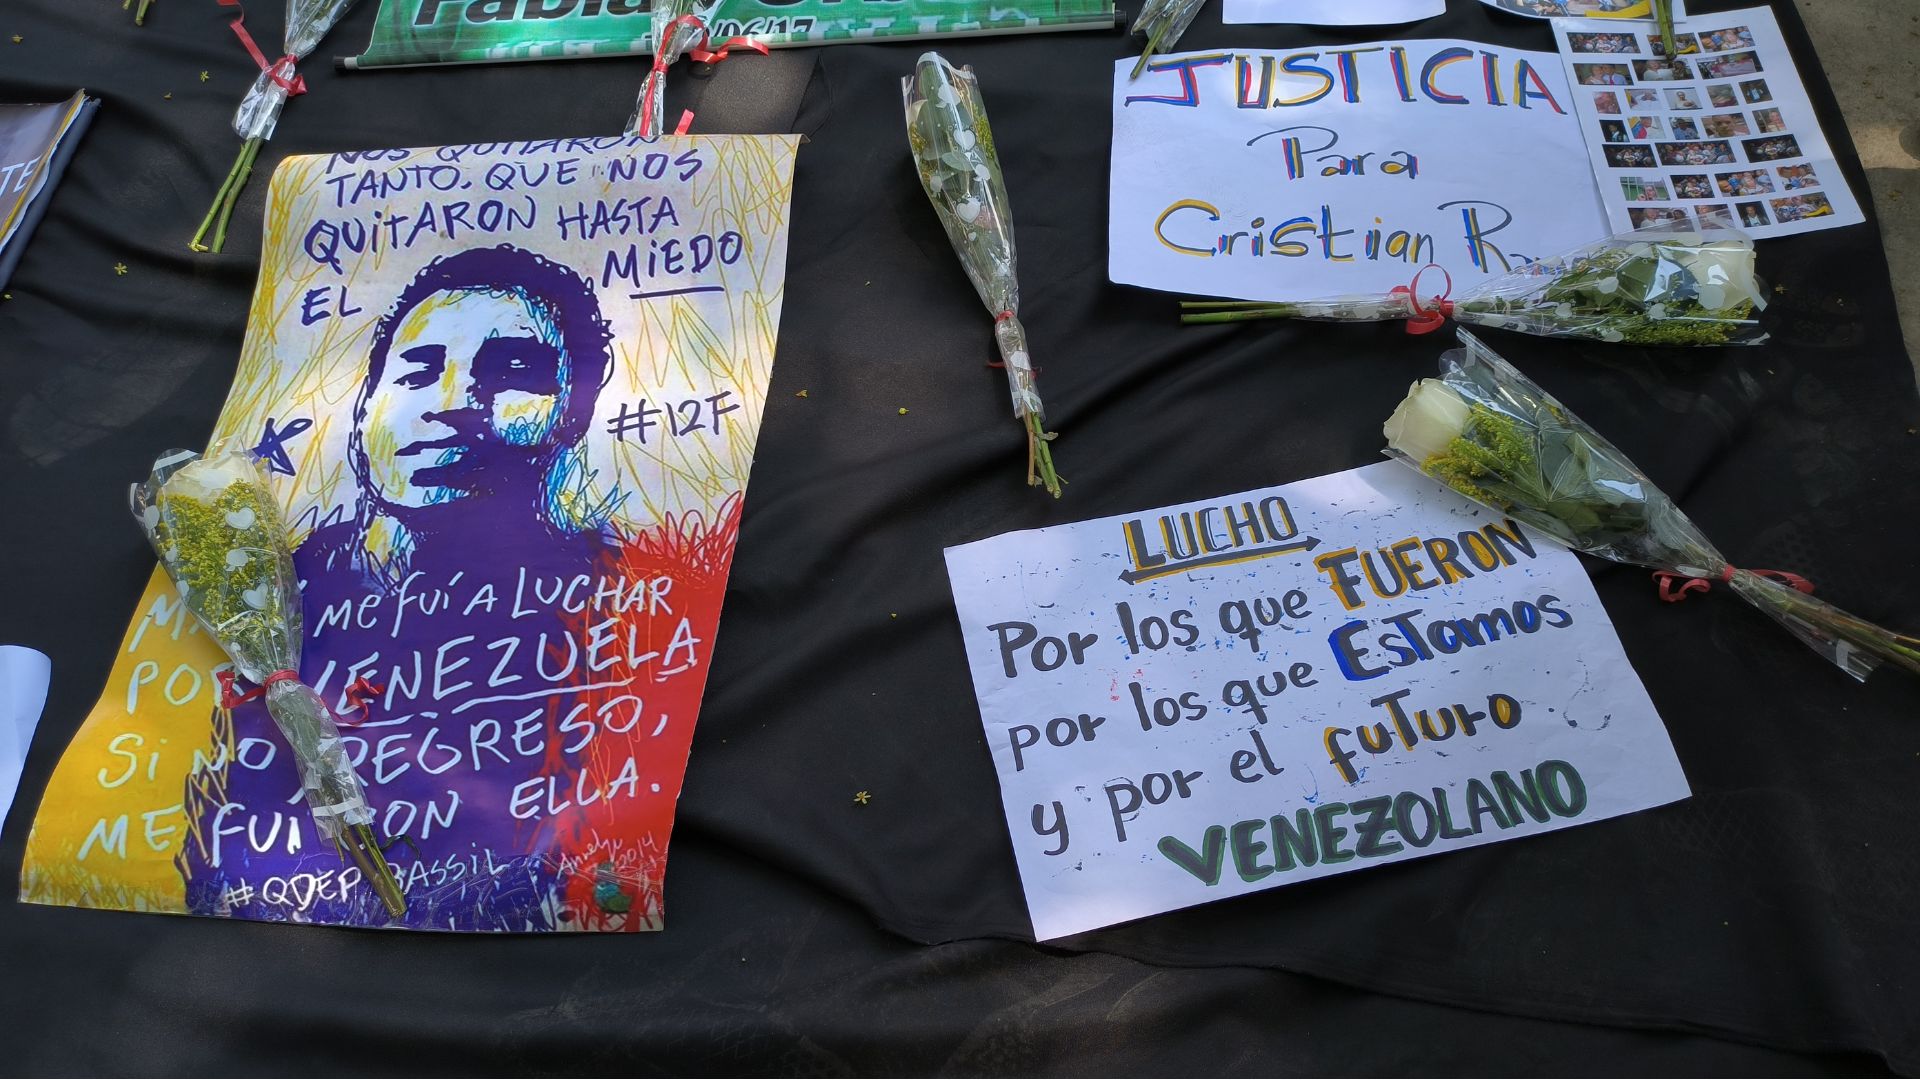 /06/17
TE
NOS QUITARON
TANTO, QUE NOS
QUITARON HASTA
EL MIEDO
#12F
ME FUÍ A LUCHAR
POR VENEZUELA
SI NO REGRESO,
ME FUI CON ELLA.
#QDEP BASSIL
2014
JUSTICIA
Para
Cristian
LUCHO
Por los que FUERON
por los que ESTamos
y por el fuTuro
VENEZOLANO